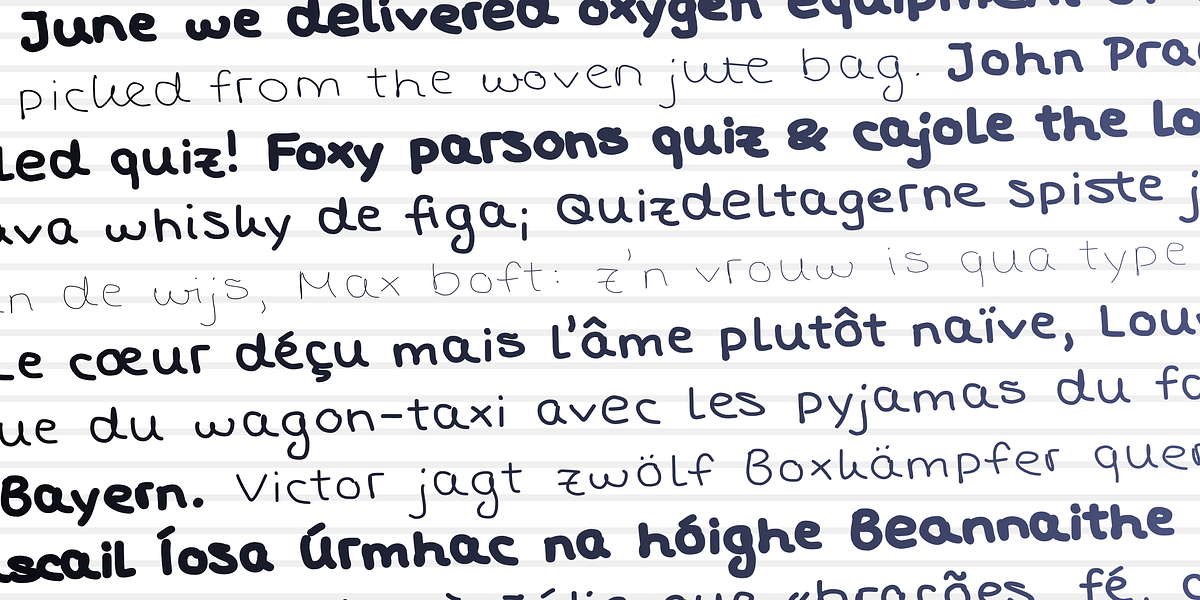 June we delivered oxygen equipment
picked from the woven jute bag. John
quiz! Foxy parsons quiz & cajole the
whisky de figa; Quizdeltagerne spiste
de wijs, Max boft: z'n vrouw is qua type
Le cœur déçu mais l'âme plutôt naïve,
du wagon-taxi avec les pyjamas du
Bayern. Victor jagt zwölf Boxkämpfer
Íosa Úrmhac na hóighe Beannaithe
que fé,